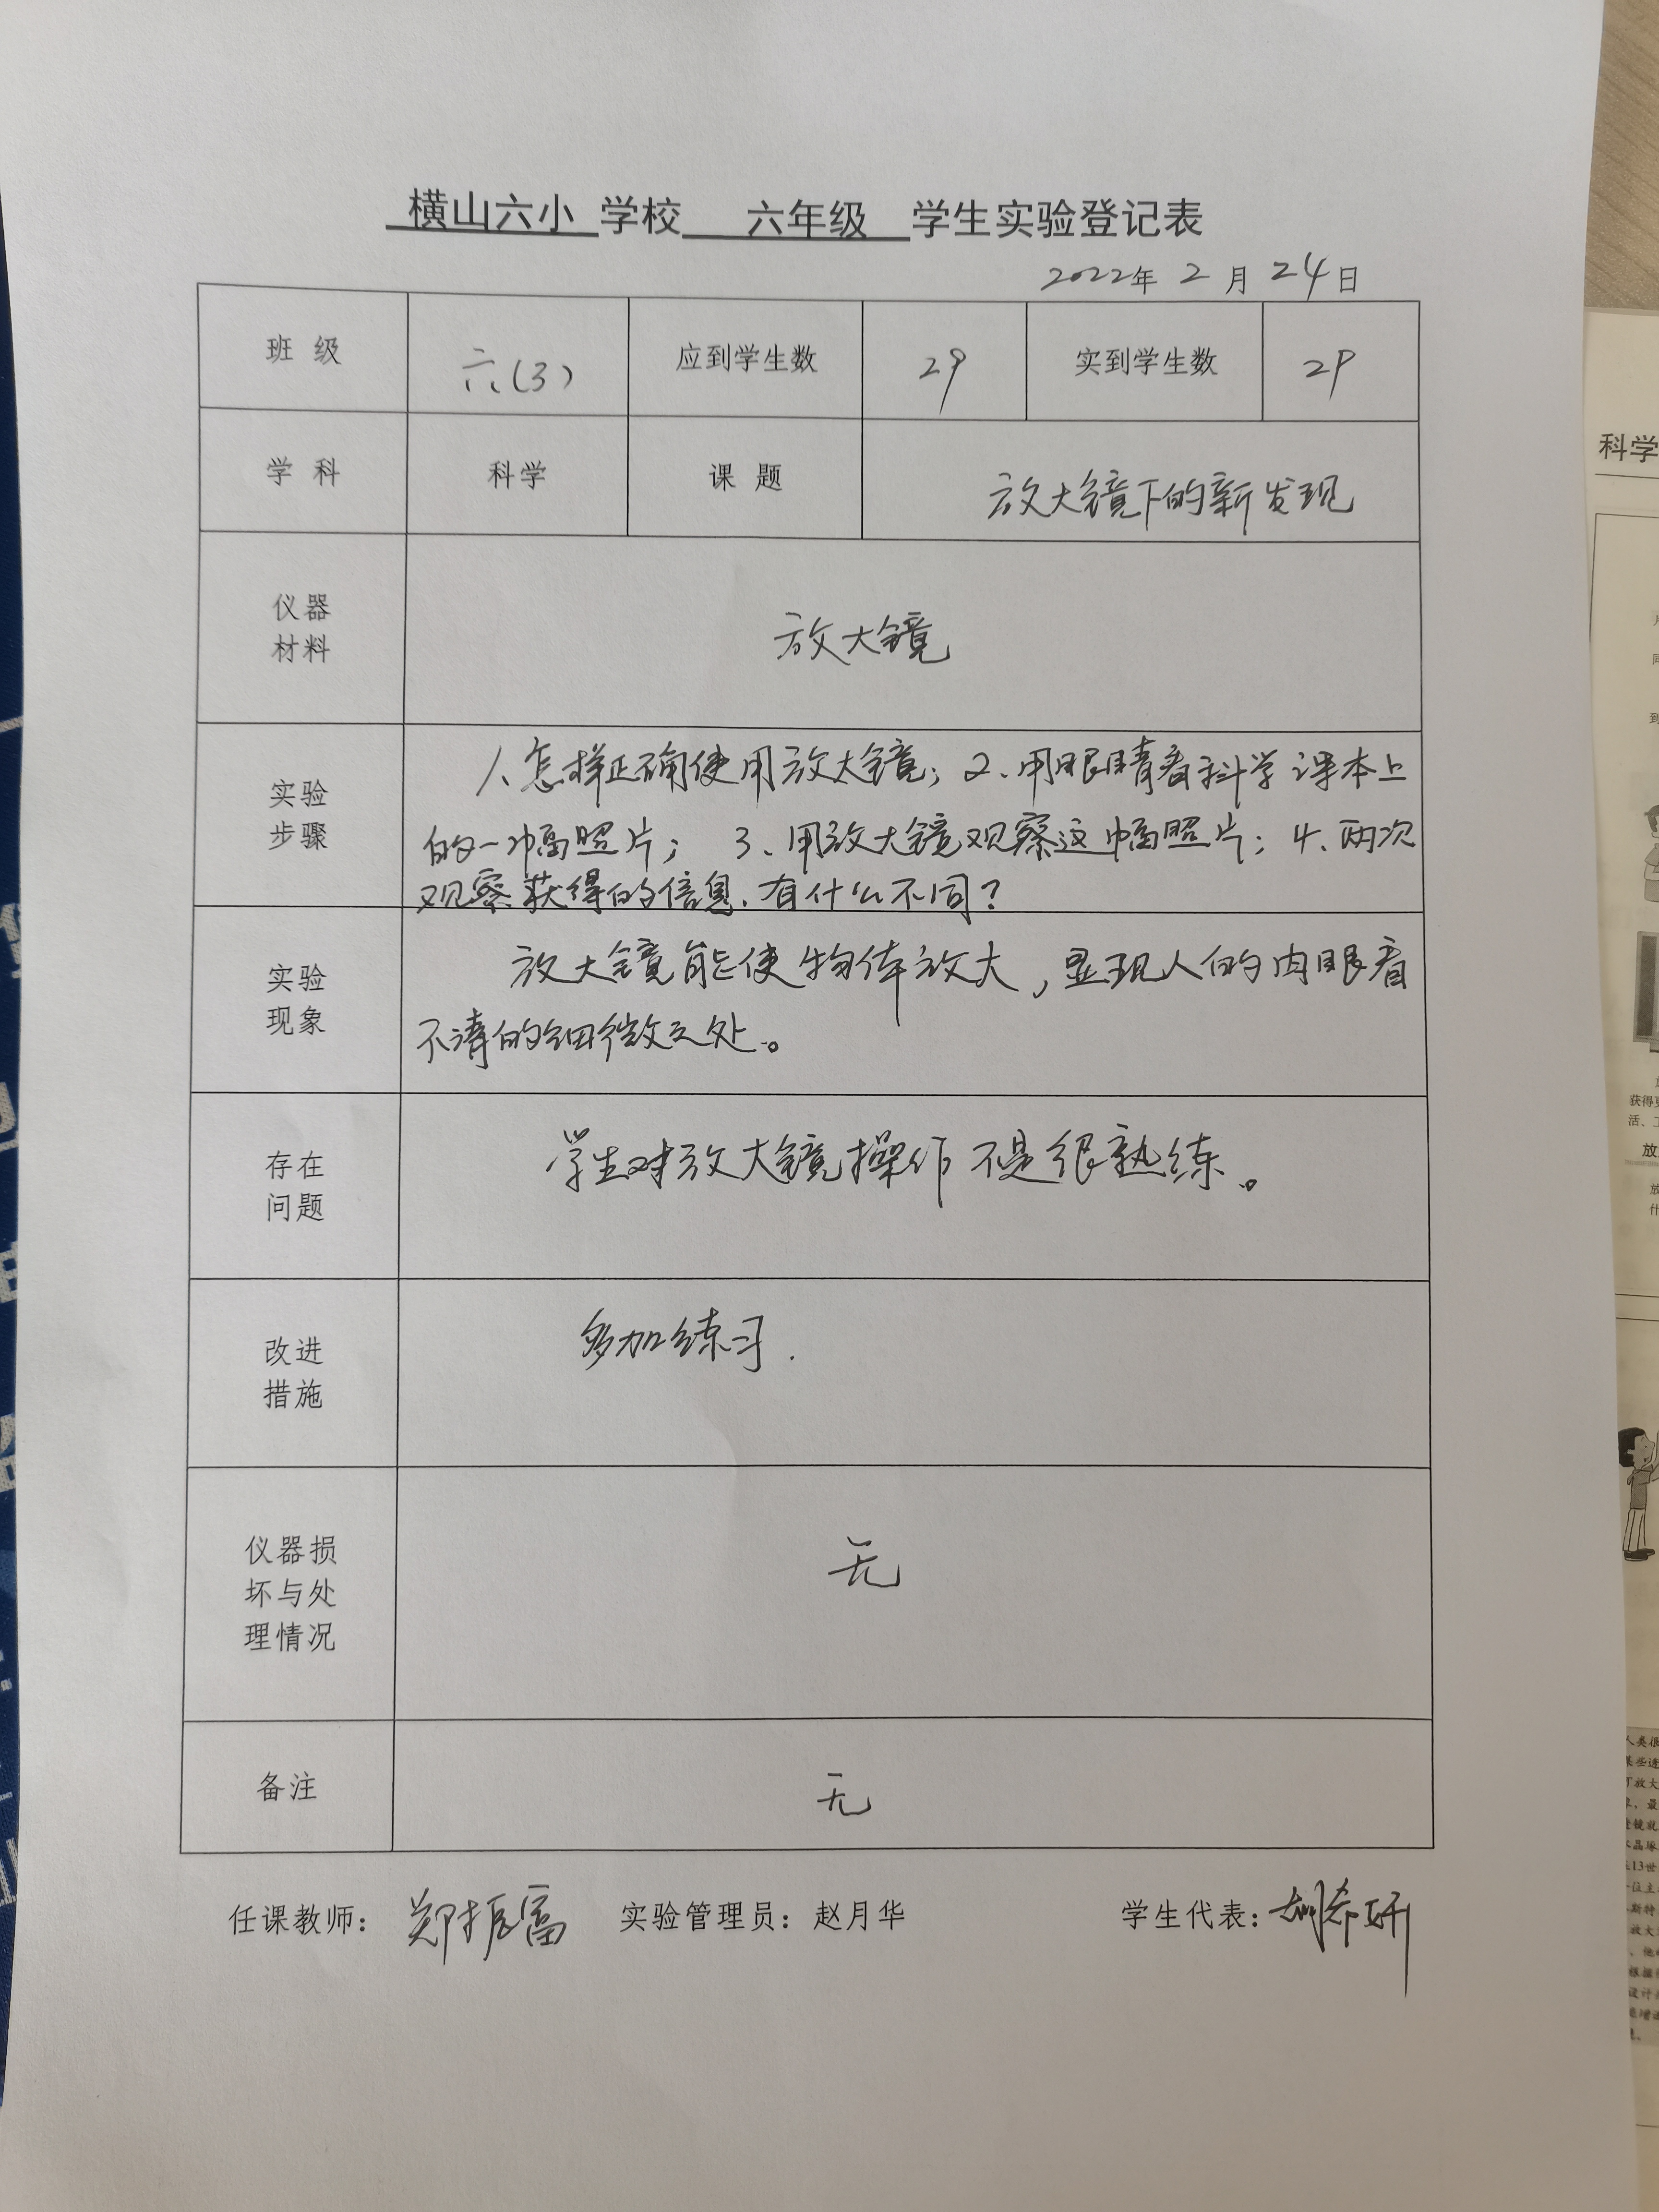 横山六小 学校 六年级 学生实验登记表
2022年 2 月 24 日
班 级 六(3) 应到学生数 29 实到学生数 29
学 科 科学 课 题 放大镜下的新发现
仪器
材料
放大镜
实验
步骤
1、怎样正确使用放大镜；2、用眼睛看科学课本上
的一幅照片； 3、用放大镜观察这幅照片；4、两次
观察获得的信息、有什么不同？
实验
现象
放大镜能使物体放大，显现人的肉眼看
不清的细微之处。
存在
问题
学生对放大镜操作不是很熟练。
改进
措施
多加练习.
仪器损
坏与处
理情况
无
备注 无
任课教师：郑振富 实验管理员：赵月华 学生代表：胡希妍
科学
获得更
活、工
放
人类很
某些透
放大
最
晶球
13世
位主
斯特
放大
根据
设计